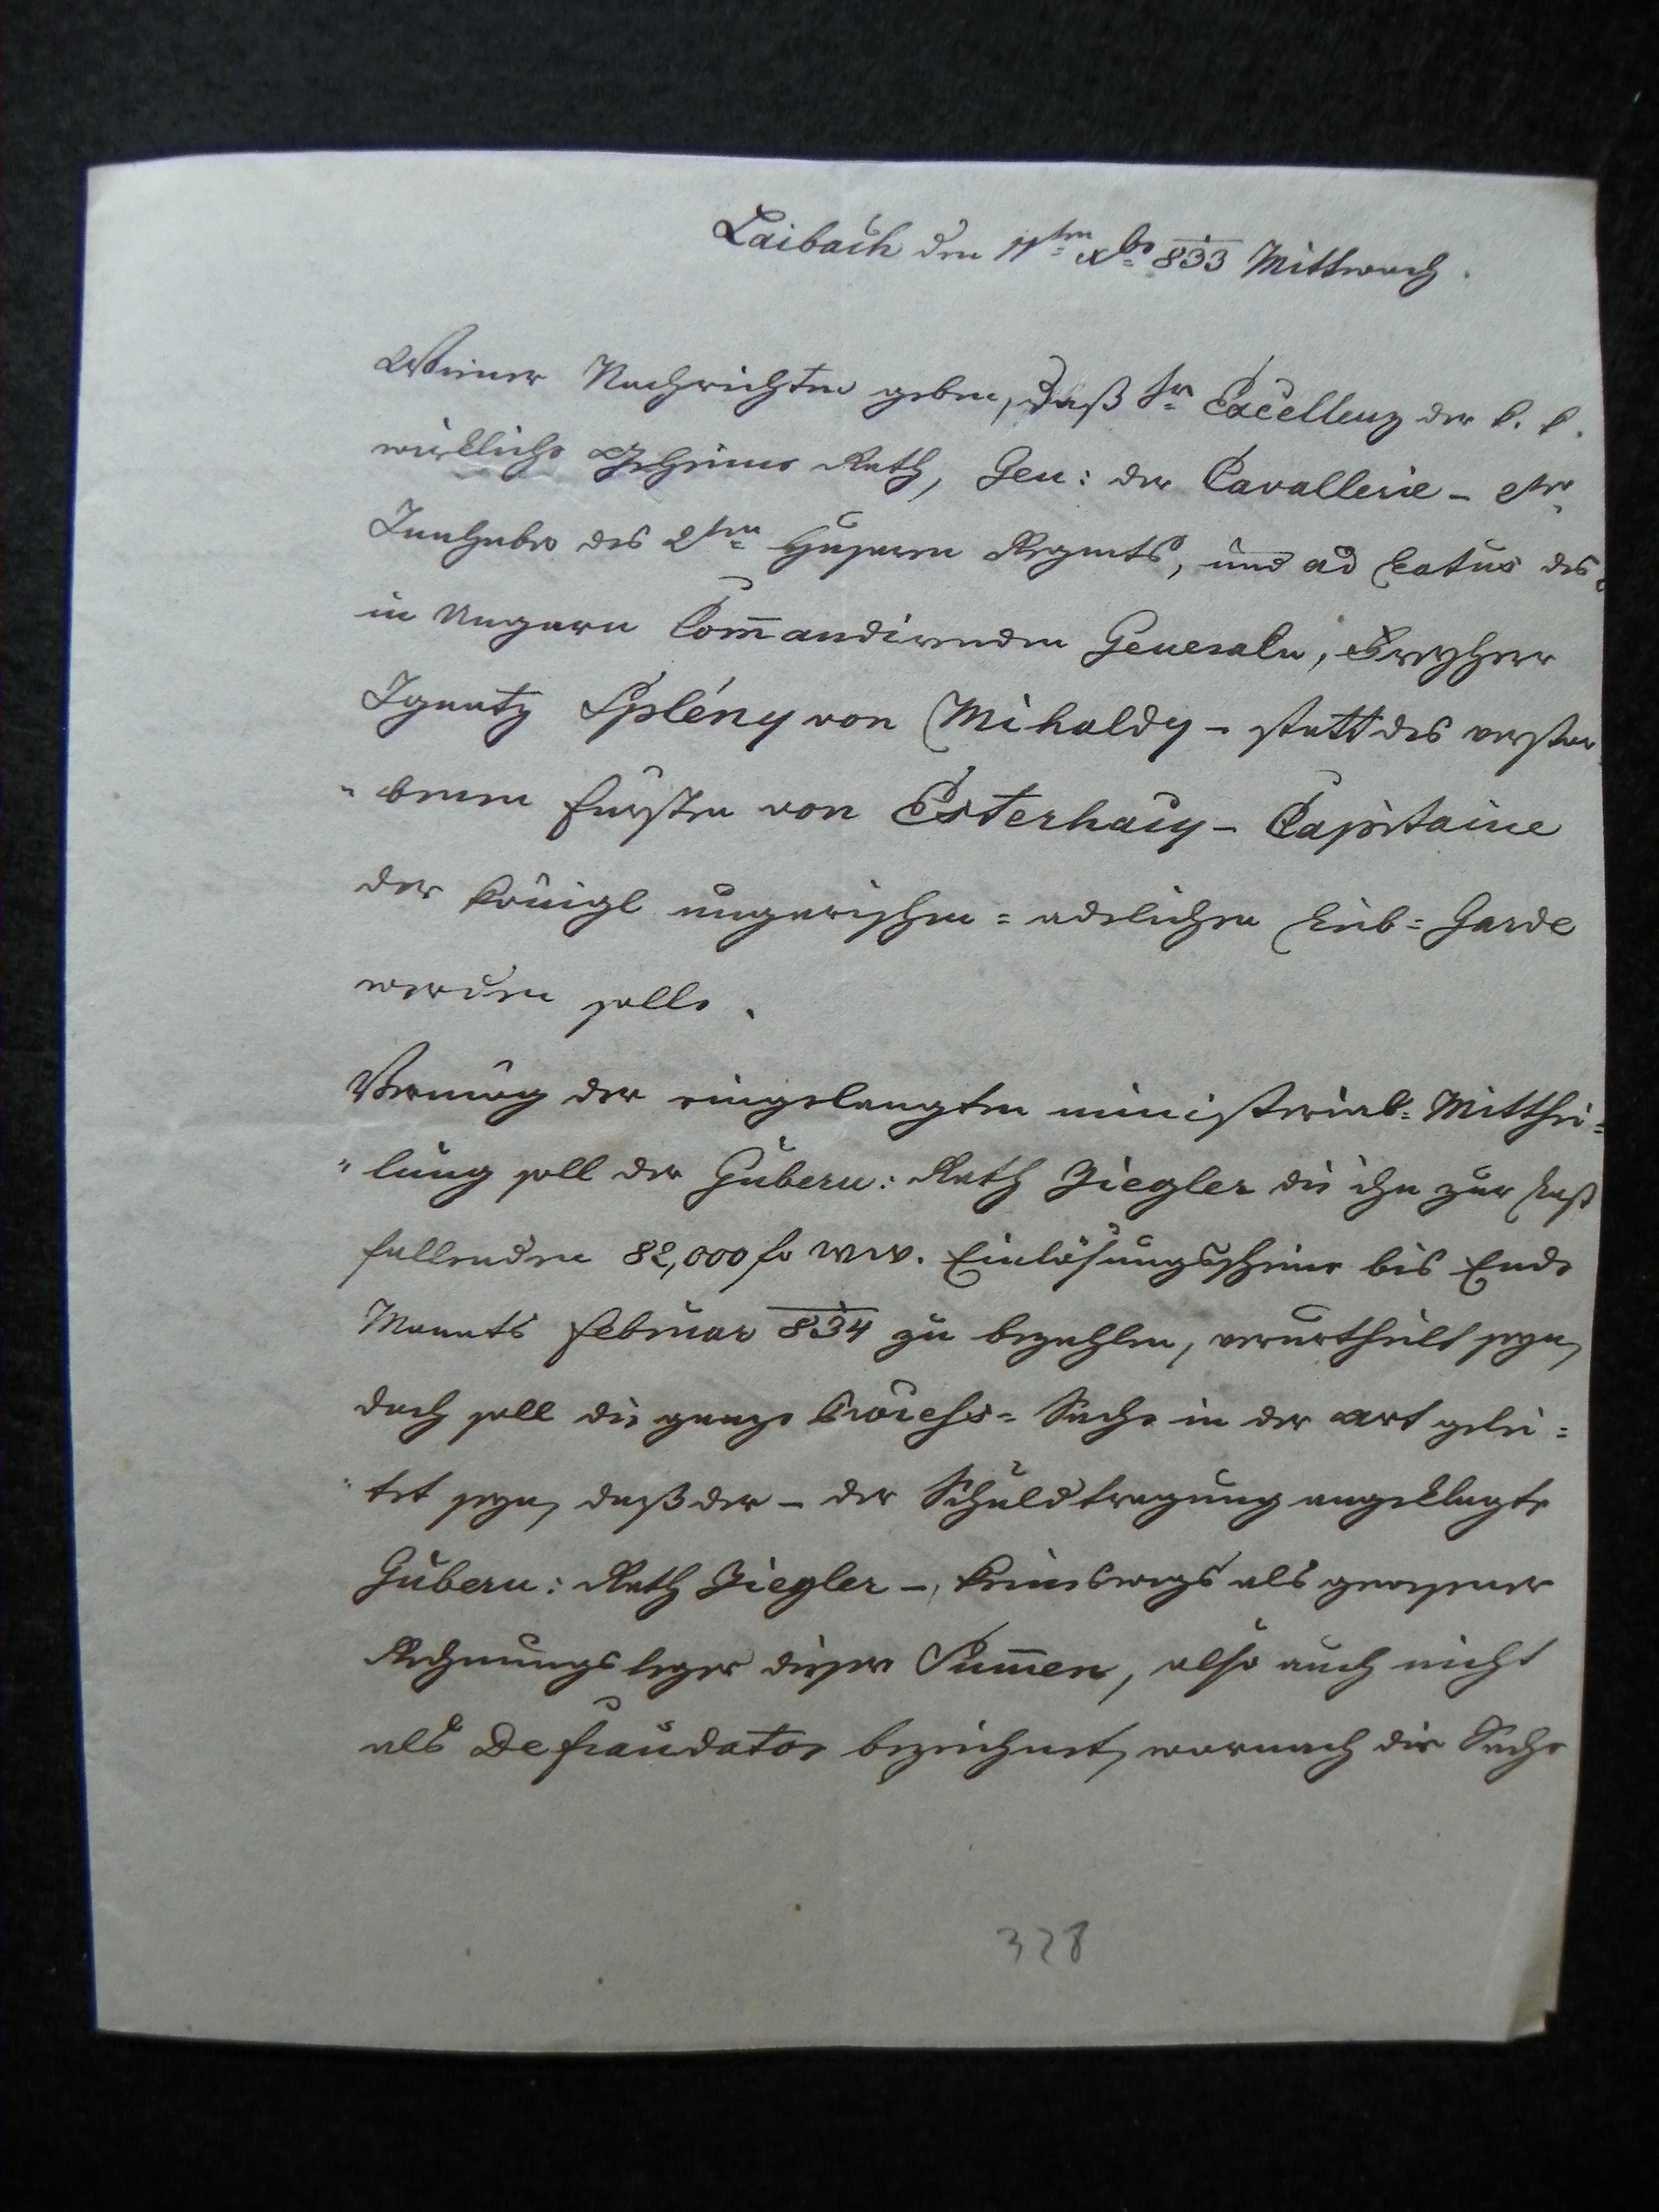 Laibach den 11ten xbr 833 Mittwoch.
Wiener Nachrichten geben, daß Sr Excellenz der k. k.
wirkliche Geheime Rath, Gen: der Cavallerie – 2ter
Innhaber des 2ten Husaren Regmts, und ad Latus des
in Ungarn Com̅andirenden Generaln, Freyherr
Ignatz Splény von Mihaldy – statt des verstor
"benen Fürsten von Esterhazy – Capitaine
der königl ungarischen = adelichen Leib = Garde
werden solle.
Vermög der eingelangten ministerial = Mitthei =
"lung soll der Gubern: Rath Ziegler die ihn zur Last
fallenden 82,000 fr WW. Einlösungsscheine bis Ende
Monats Februar 834 zu bezahlen, verurtheilt seyn,
doch soll die ganze Proceß = Sache in der Art gelei =
"tet seyn, daß der – der Schuldtragung angeklagte
Gubern: Rath Ziegler –, keineswegs als gewesener
Rechnungsleger dieser Sum̅en, also auch nicht
als Defraudator bezeichnet, wornach die Sache
328